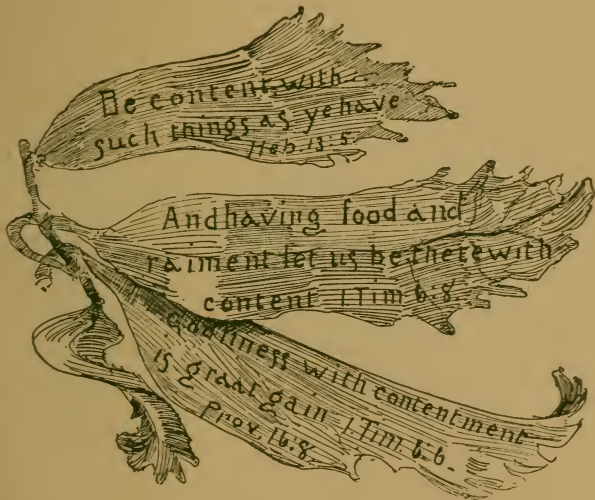 Be content with
such things as ye have
Heb. 13:5.
And having food and
raiment let us be therewith
content. 1 Tim. 6:8.
Godliness with contentment
is great gain. 1. Tim. 6:6.
Prov. 16:8.